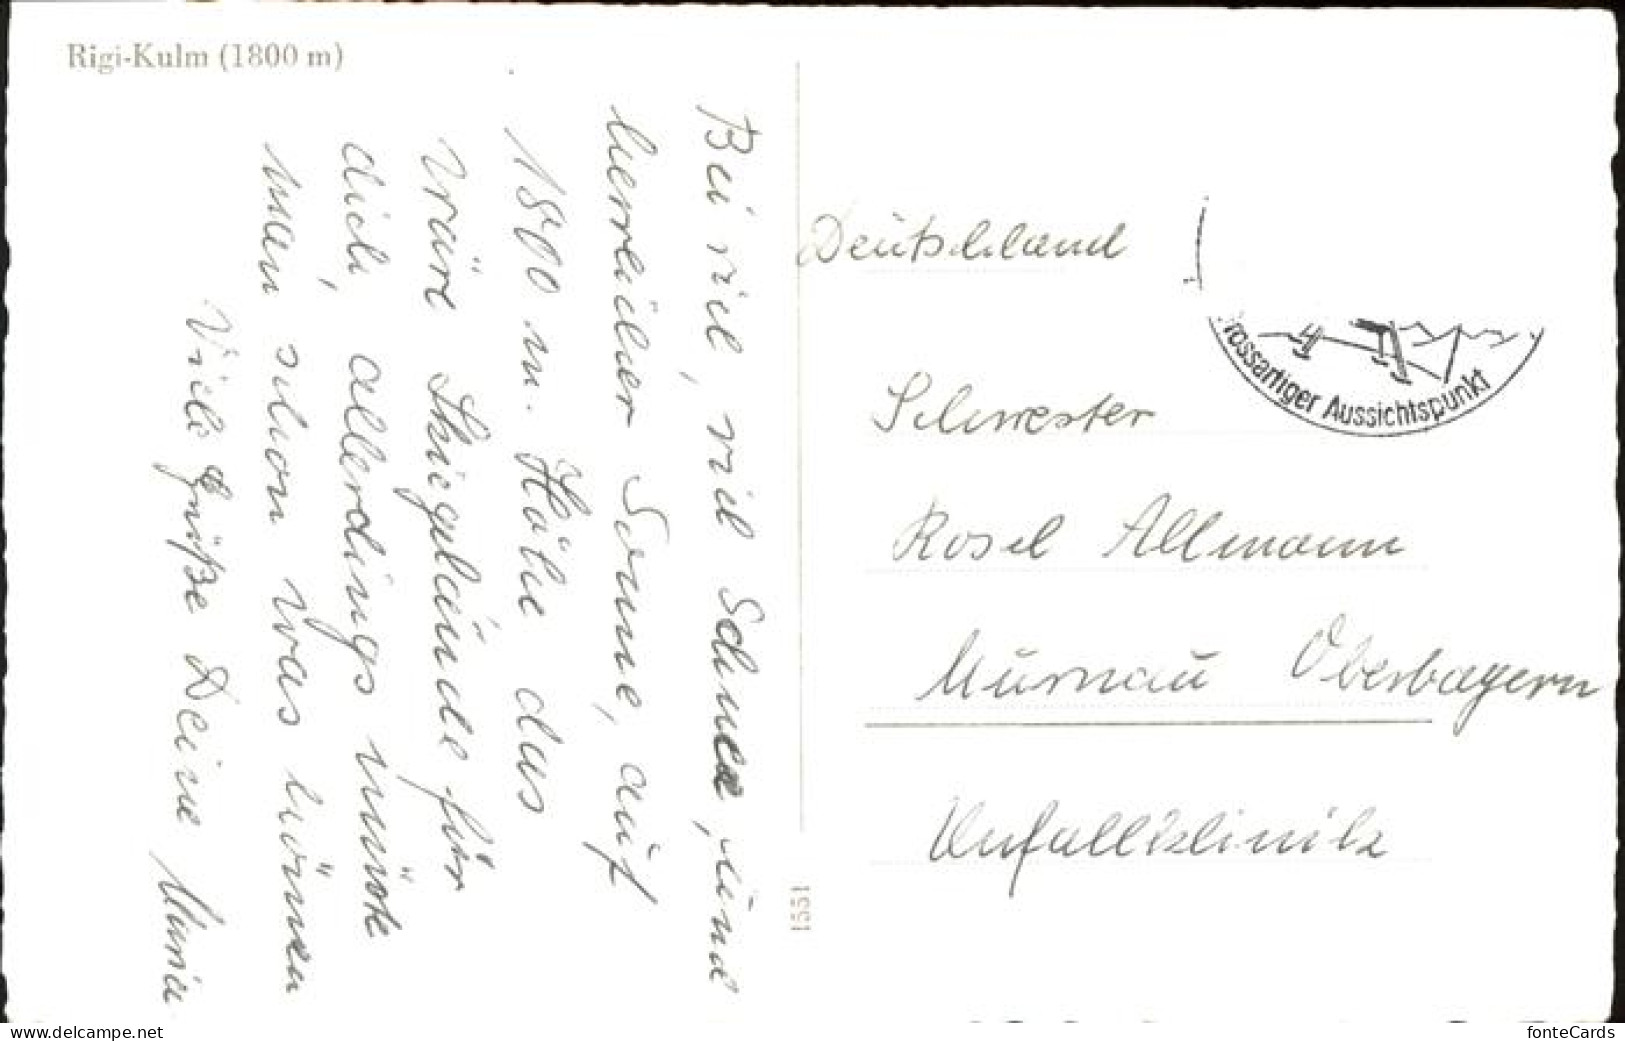 Rigi-Kulm (1800 m)
Bei viel, viel Schnee, und
herrlicher Sonne, auf
1800 m. Höhe das
wäre Skigelände für
dich, allerdings müßte
man schon was können
Viele Grüße Deine Maria
1551
Deutschland
rossartiger Aussichtspunkt
Schwester
Rosel Allmann
Murnau Oberbayern
Unfallklinik
www.delcampe.net
fonteCards